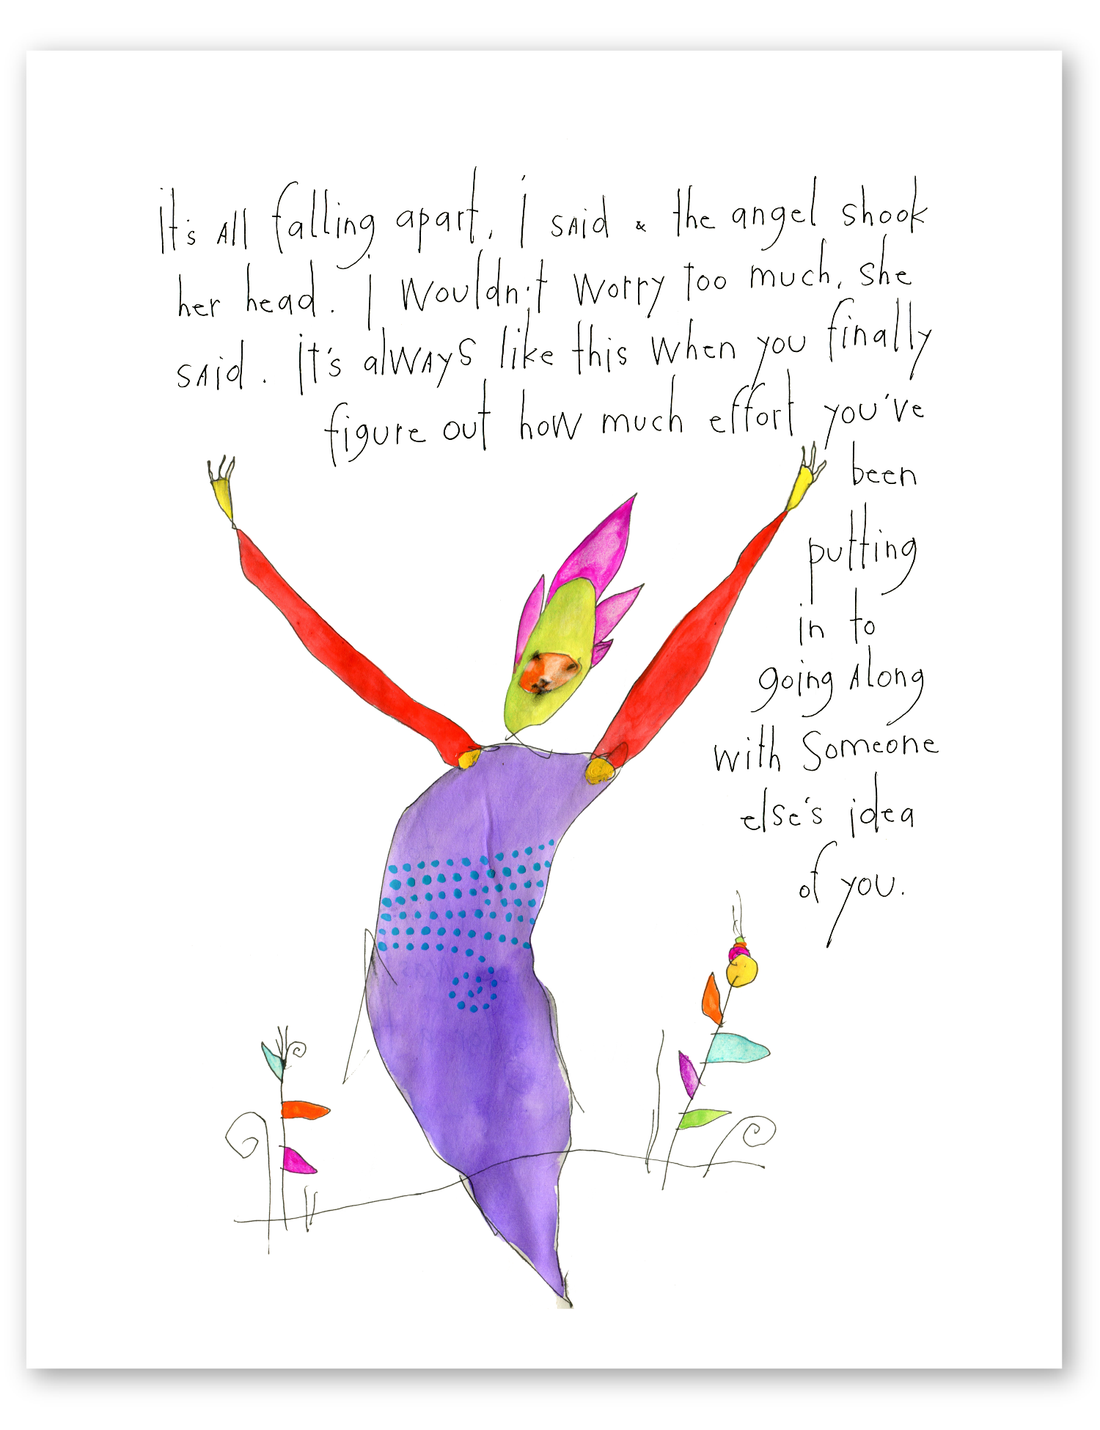 it's All falling apart, i said & the angel shook
her head. i wouldn't worry too much, she
said. it's always like this when you finally
figure out how much effort you've
been
putting
in to
going along
with someone
else's idea
of you.